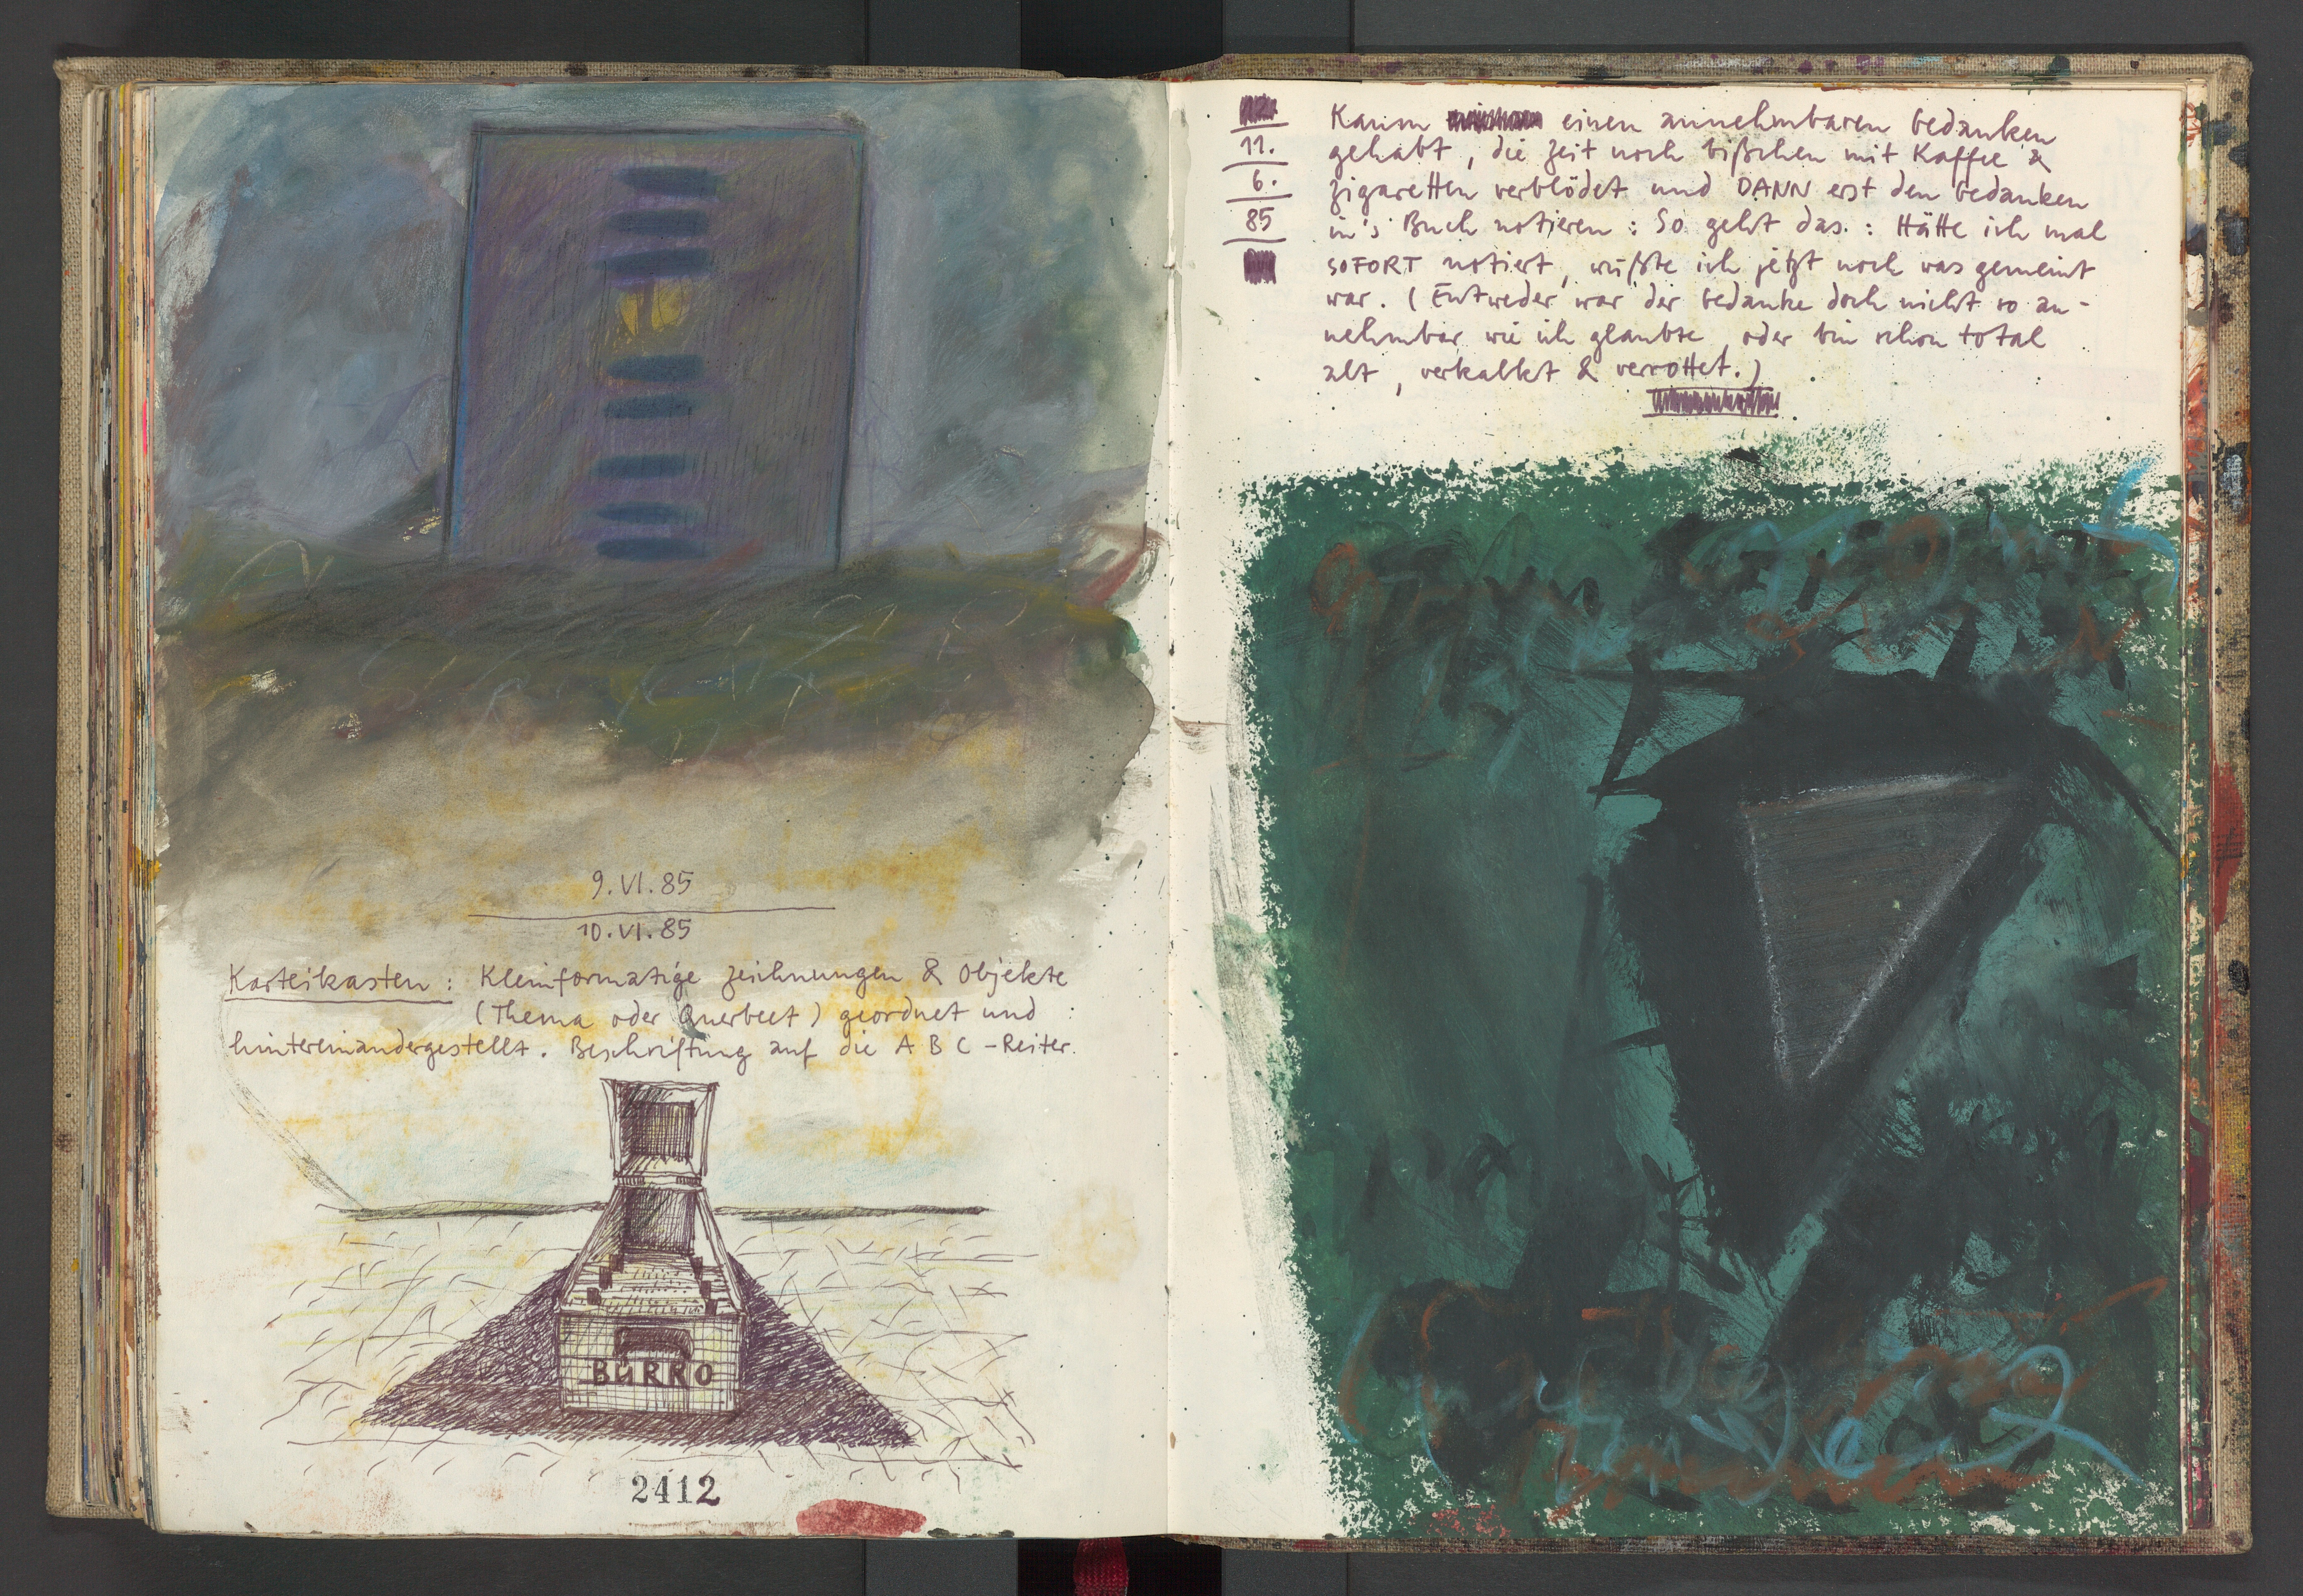 9. VI. 85
10. VI. 85
Karteikasten : Kleinformatige Zeichnungen & Objekte
(Thema oder Querbeet) geordnet und
hintereinandergestellt. Beschriftung auf die A B C - Reiter.
BÜRRO
2412
11.
6.
85
Kaum einen annehmbaren Gedanken
gehabt, die Zeit noch bißchen mit Kaffee &
Zigaretten verblödet und DANN erst den Gedanken
in's Buch notieren : So geht das. : Hätte ich mal
SOFORT notiert, wüßte ich jetzt noch was gemeint
war. (Entweder war der Gedanke doch nicht so an-
nehmbar wie ich glaubte, oder bin schon total
alt, verkalkt & verrottet.)